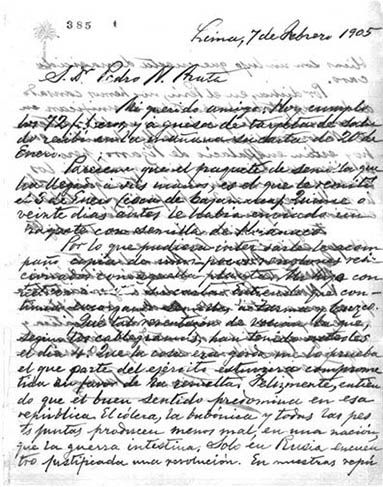 385
Lima, 7 de Febrero 1905
S. D. Pedro N. Arata
Mi querido amigo: Hoy cumplo
los 72 y á guisa de tarjeta de salu-
do recibí esta mañana su carta de 20 de
Enero.
Pareceme que el paquete de semilla que
ha llegado á sus manos, es el que le remití
el 5 de Enero Quince ó
veinte dias antes le habia enviado un
paquete con semilla de
Por lo que pudiera interesarle le acom-
paño copia de unos pocos renglones
con aquella planta. Mi hijo
entiendo que con-
semilla, á Tarma y
Qué tal la que,
segun los cablegramas, han tenido ustedes
el dia 4. Que la cosa era gorda me lo prueba
el que parte del ejército estuviera comprome-
tida en favor de la revuelta. Felizmente, entien-
do que el buen sentido predomina en esa
república. El cólera, la bubónica y todas las pes-
tes juntas producen menos mal, en una nación,
que la guerra intestina. Solo en Rusia encuen-
tro justificada una revolución. En nuestras repú-